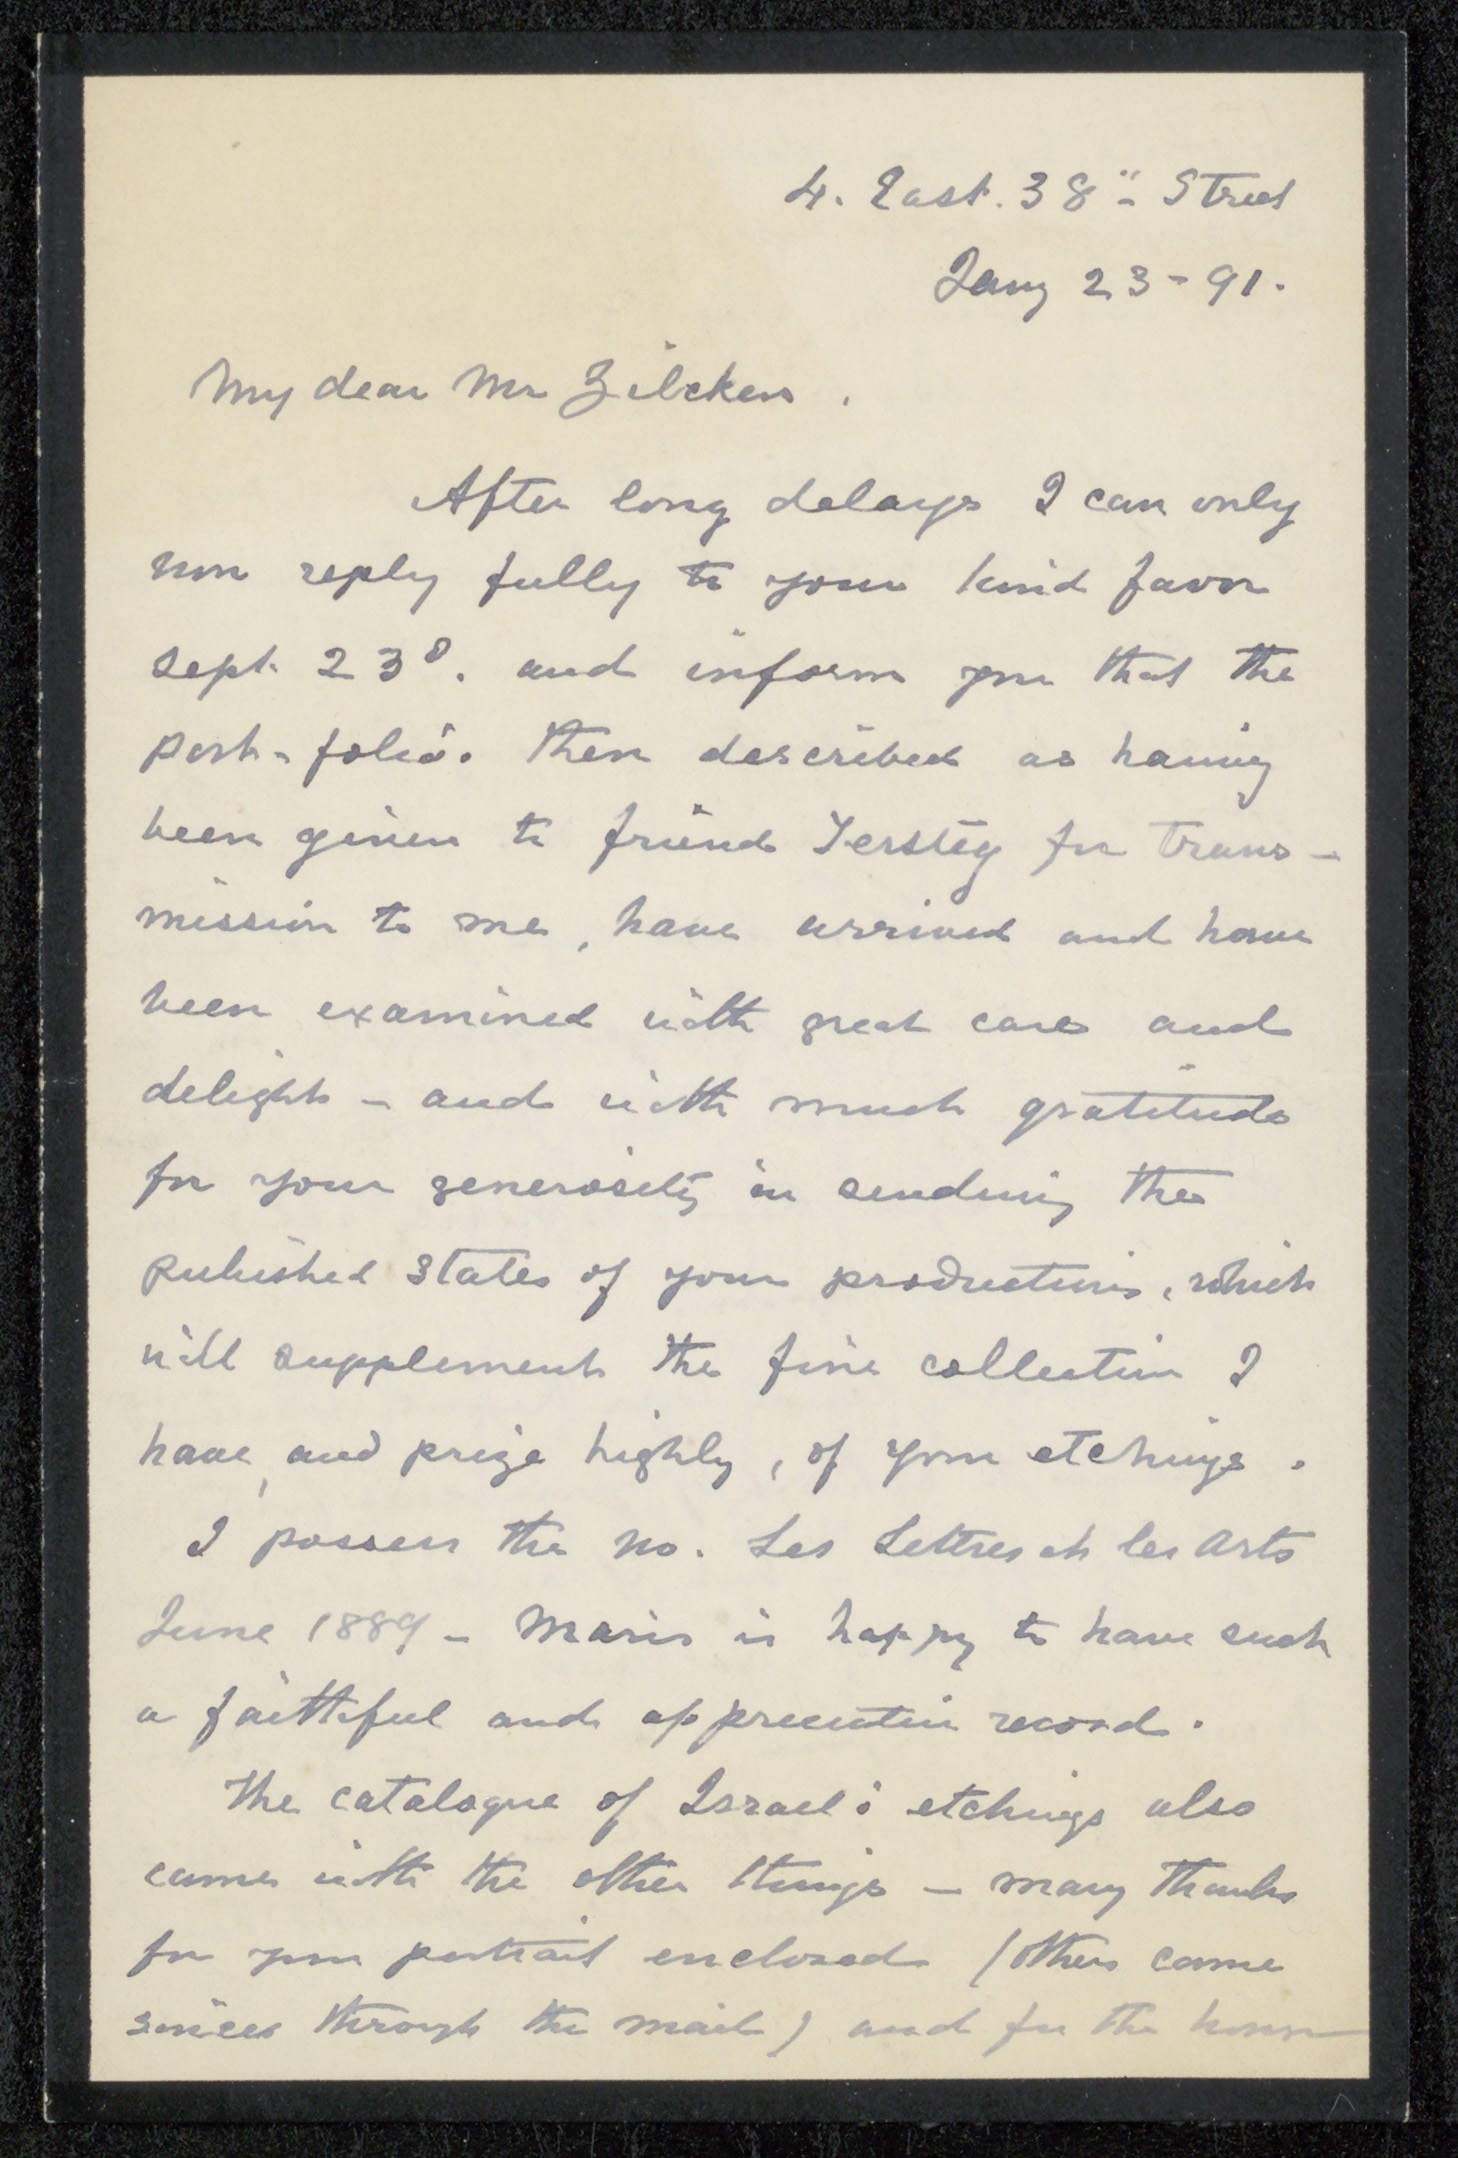 4. East. 38" Street
Jany 23 - 91.
My dear Mr Zilcken.
After long delays I can only
now reply fully to your kind favor
Sept. 23d. and inform you that the
port-folio. then described as having
been given to friend Tersteg for trans-
mission to me, have arrived and have
been examined with great care and
delight - and with much gratitude
for your generosity in sending the
published states of your productions, which
will supplement the fine collection I
have, and prize highly, of your etchings.
I possess the No. Les Lettres et les Arts
June 1889 - Maris is happy to have such
a faithful and appreciative record.
The catalogue of Israels etchings also
came with the other things - many thanks
for your portrait enclosed (others came
since through the mail) and for the honor